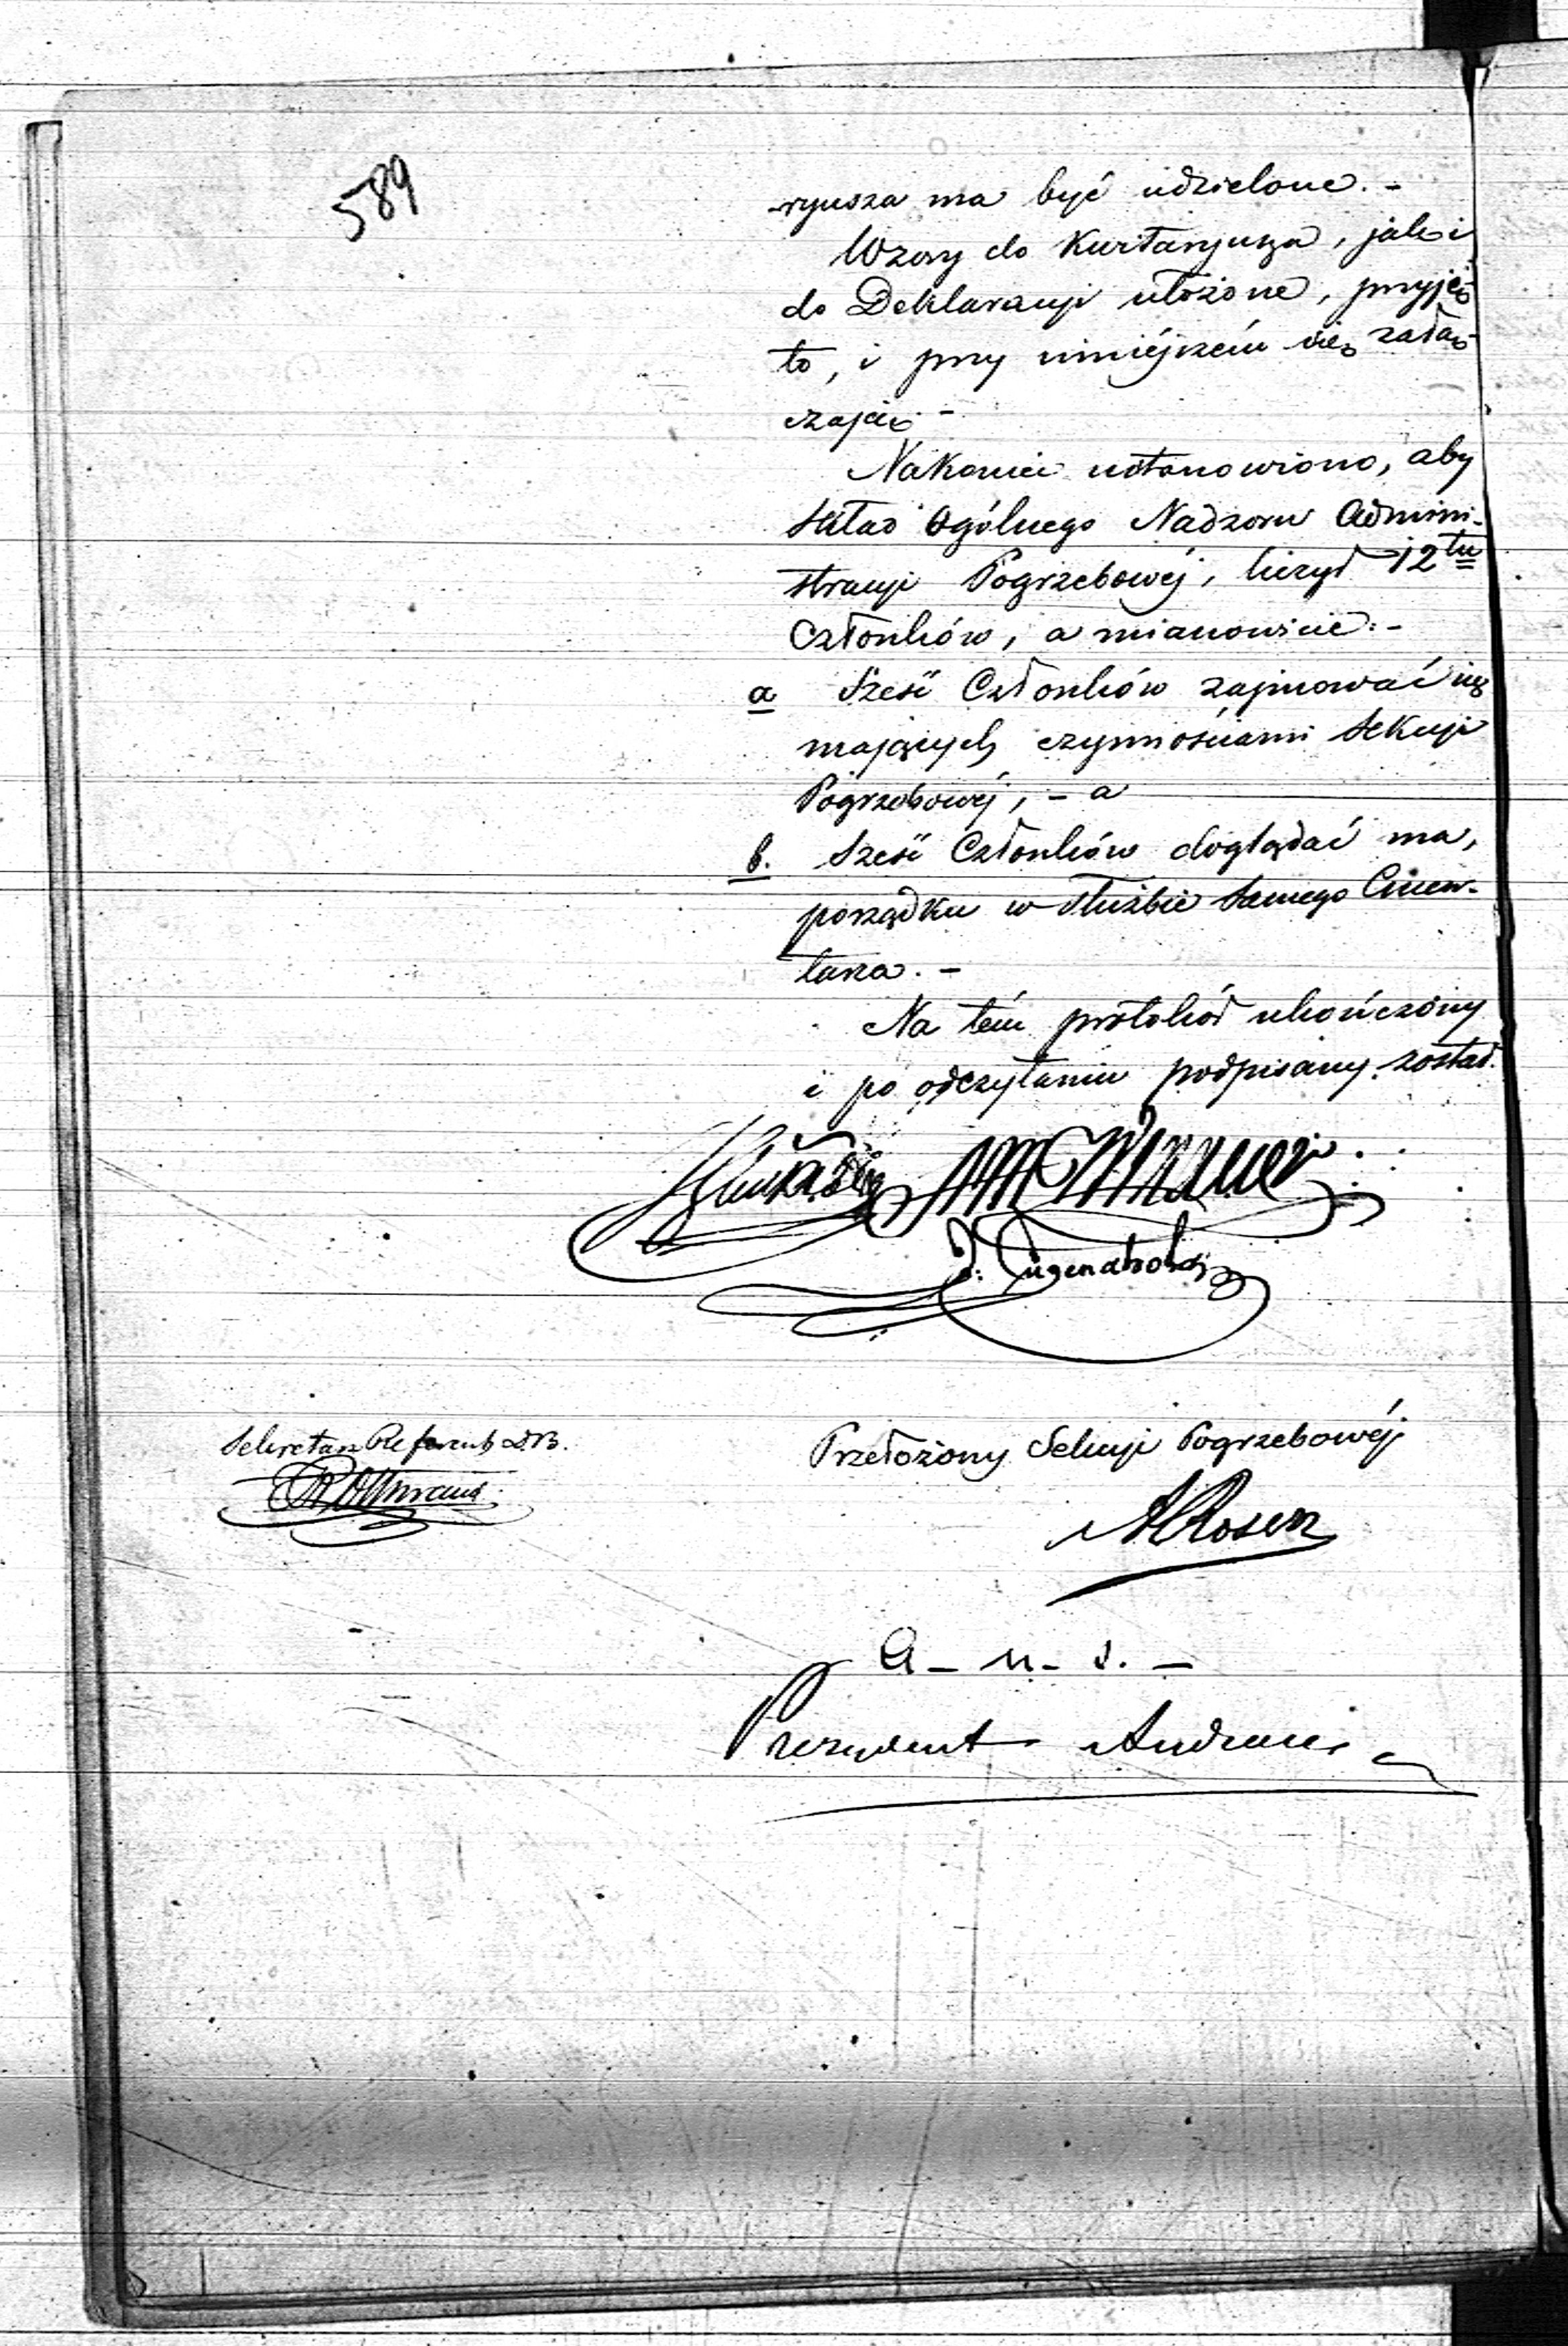 589
-ryusza ma być udzielone. -
Wzory do Kwitaryusza, jak i
do Deklaracyi ułożone, przyję-
to, i przy niniéjszém się załą-
czają. -
Nakoniec ustanowiono, aby
skład Ogólnego Nadzoru Admini-
stracyi Pogrzebowéj, liczył 12tu
Członków, a mianowicie: -
a Sześć Członków zajmować się
mających czynnościami Sekcyi
Pogrzebowéj, - a
b. Sześć Członków doglądać ma,
porządku w służbie samego Cmen-
tarza. -
Na tém protokół ukończony
i po odczytaniu podpisany został.
J. Tugendhold
Sekretarz Referent D.B.
Przełożony Sekcyi Pogrzebowéj
MRosen
a - u - s. -
Prezydent Andrault